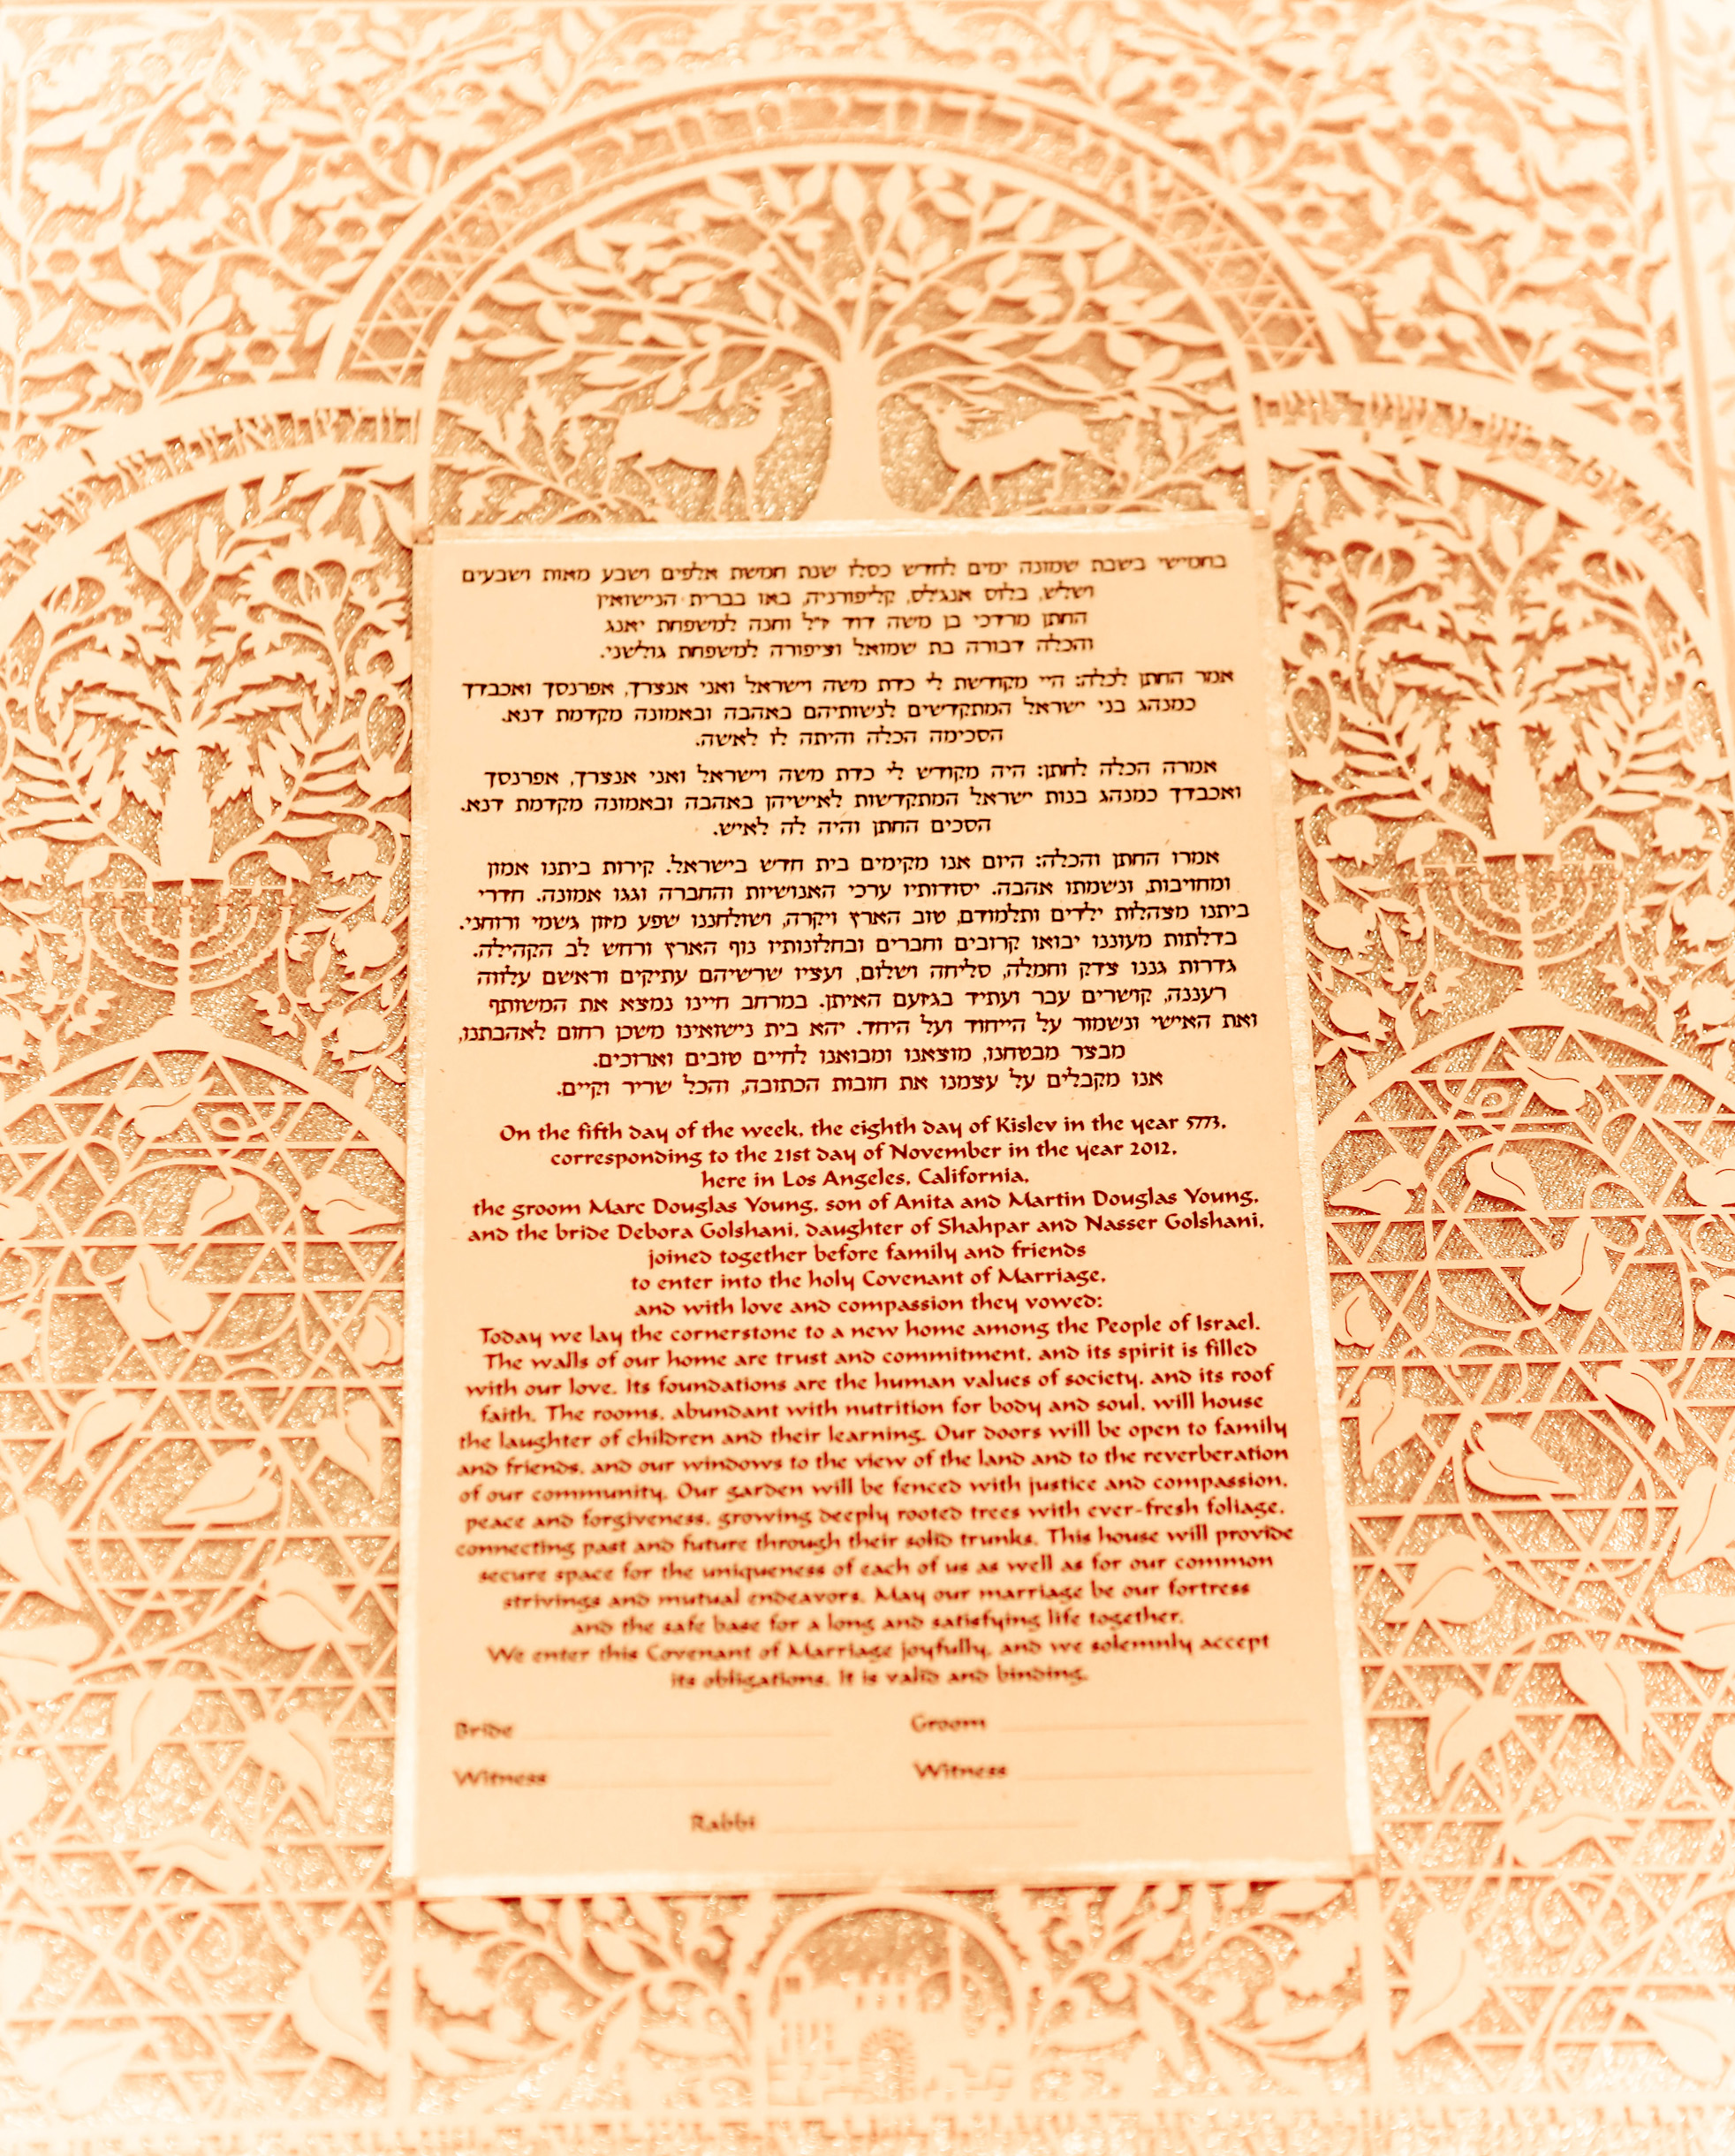 לדודי ודודי לי
בחמישי בשבת שמונה ימים לחדש כסלו שנת חמשת אלפים ושבע מאות ושבעים
ושלש, בלוס אנג'לס, קליפורניה, באו בברית הנישואין
החתן מרדכי בן משה דוד ז״ל וחנה למשפחת יאנג
והכלה דבורה בת שמואל וציפורה למשפחת גולשני.
אמר החתן לכלה: היי מקודשת לי כדת משה וישראל ואני אנצרך, אפרנסך ואכבדך
כמנהג בני ישראל המתקדשים לנשותיהם באהבה ובאמונה מקדמת דנא.
הסכימה הכלה והיתה לו לאשה.
אמרה הכלה לחתן: היה מקודש לי כדת משה וישראל ואני אנצרך, אפרנסך
ואכבדך כמנהג בנות ישראל המתקדשות לאישיהן באהבה ובאמונה מקדמת דנא.
הסכים החתן והיה לה לאיש.
אמרו החתן והכלה: היום אנו מקימים בית חדש בישראל. קירות ביתנו אמון
ומחויבות, ונשמתו אהבה. יסודותיו ערכי האנושיות והחברה וגגו אמונה. חדרי
ביתנו מצהלות ילדים ותלמודם, טוב הארץ ויקרה, ושולחננו שפע מזון גשמי ורוחני.
בדלתות מעוננו יבואו קרובים וחברים ובחלונותיו נוף הארץ ורחש לב הקהילה.
גדרות גננו צדק וחמלה, סליחה ושלום, ועציו שרשיהם עתיקים וראשם עלווה
רעננה, קושרים עבר ועתיד בגזעם האיתן. במרחב חיינו נמצא את המשותף
ואת האישי ונשמור על הייחוד ועל היחד. יהא בית נישואינו משכן רחום לאהבתנו,
מבצר מבטחנו, מוצאנו ומבואנו לחיים טובים וארוכים.
אנו מקבלים על עצמנו את חובות הכתובה, והכל שריר וקיים.
On the fifth day of the week, the eighth day of Kislev in the year 5773,
corresponding to the 21st day of November in the year 2012,
here in Los Angeles, California,
the groom Marc Douglas Young, son of Anita and Martin Douglas Young,
and the bride Debora Golshani, daughter of Shahpar and Nasser Golshani,
joined together before family and friends
to enter into the holy Covenant of Marriage,
and with love and compassion they vowed:
Today we lay the cornerstone to a new home among the People of Israel.
The walls of our home are trust and commitment, and its spirit is filled
with our love. Its foundations are the human values of society, and its roof
faith. The rooms, abundant with nutrition for body and soul, will house
the laughter of children and their learning. Our doors will be open to family
and friends, and our windows to the view of the land and to the reverberation
of our community. Our garden will be fenced with justice and compassion,
peace and forgiveness, growing deeply rooted trees with ever-fresh foliage,
connecting past and future through their solid trunks. This house will provide
secure space for the uniqueness of each of us as well as for our common
strivings and mutual endeavors. May our marriage be our fortress
and the safe base for a long and satisfying life together.
We enter this Covenant of Marriage joyfully, and we solemnly accept
its obligations. It is valid and binding.
Bride Groom
Witness Witness
Rabbi